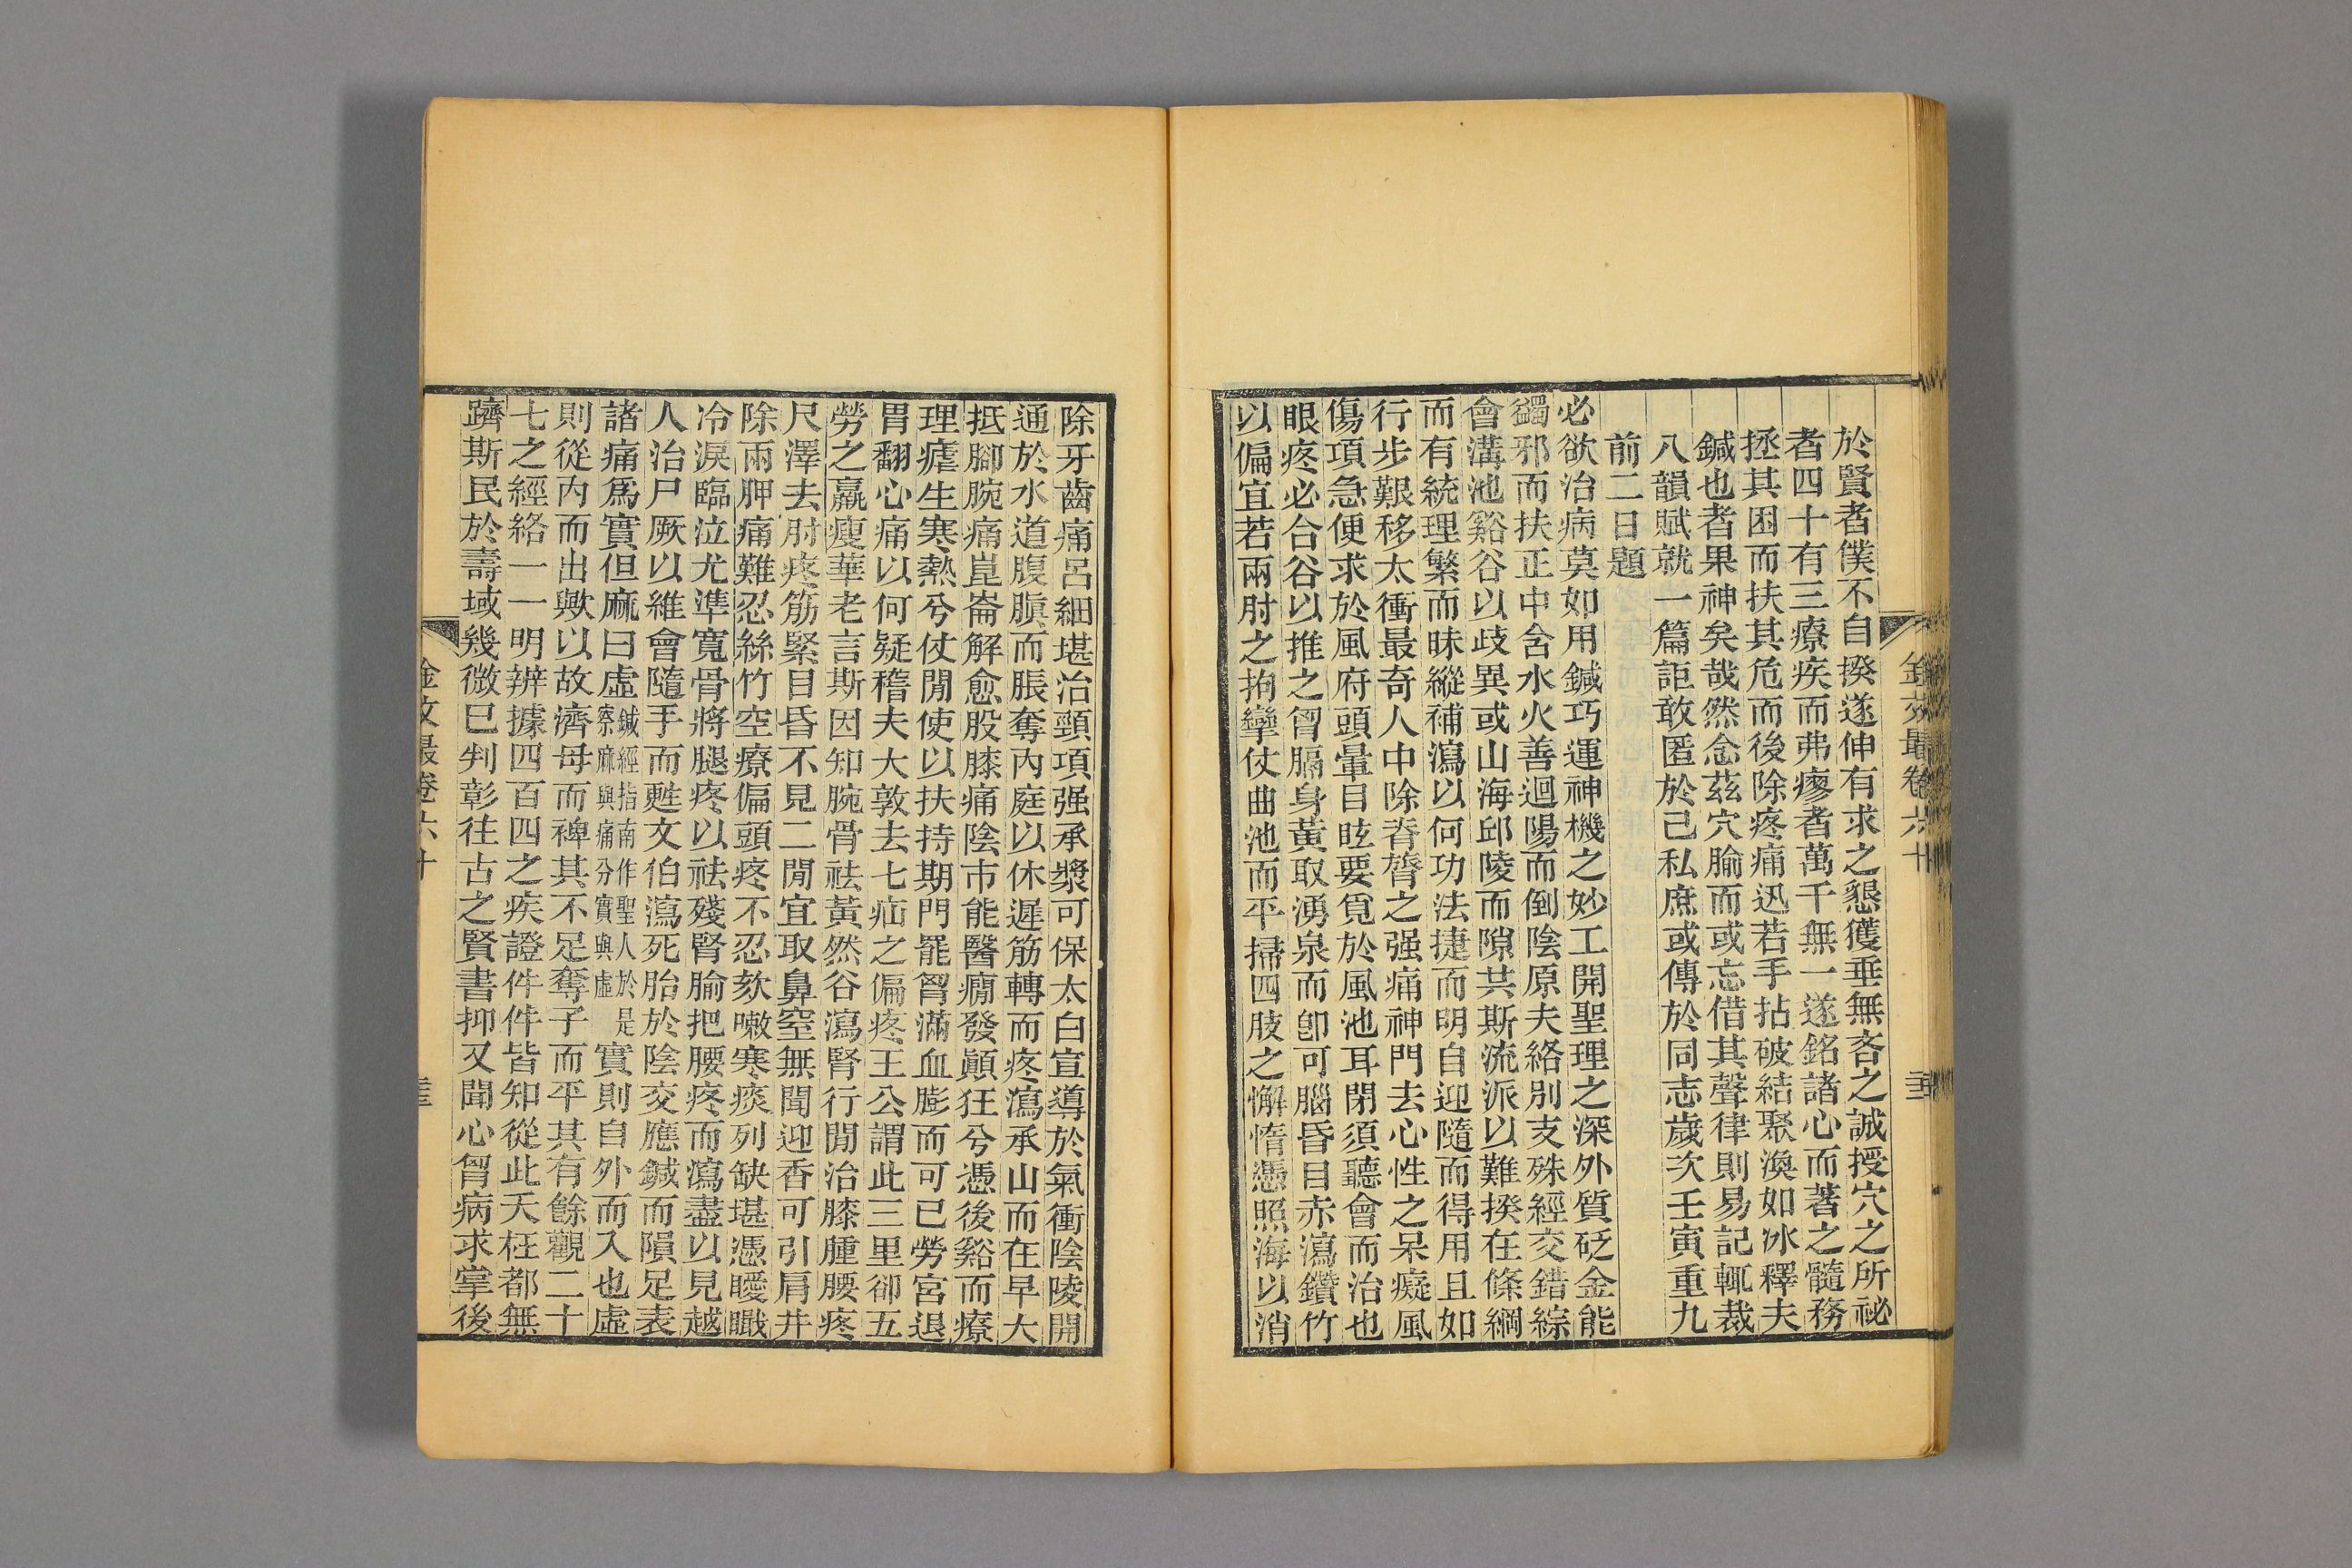 於賢者僕不自揆遂伸有求之懇獲垂無吝之誠授穴之所祕
者四十有三療疾而弗瘳者萬千無一遂銘諸心而著之髓務
拯其困而扶其危而後除疼痛迅若手拈破結聚渙如冰釋夫
鍼也者果神矣哉然念茲穴腧而或忘借其聲律則易記輒裁
八韻賦就一篇詎敢匿於己私庶或傳於同志歲次壬寅重九
前二日題
必欲治病莫如用鍼巧運神機之妙工開聖理之深外質砭金能
蠲邪而扶正中含水火善迴陽而倒陰原夫絡別支殊經交錯綜
會溝池谿谷以歧異或山海邱陵而隙共斯流派以難揆在條綱
而有統理繁而昧縱補瀉以何功法捷而明自迎隨而得用且如
行步艱移太衝最奇人中除脊膂之强痛神門去心性之呆癡風
傷項急便求於風府頭暈目眩要覓於風池耳閉須聽會而治也
眼疼必合谷以推之胷膈身黃取湧泉而卽可腦昏目赤瀉鑽竹
以偏宜若兩肘之拘攣仗曲池而平掃四肢之懈惰憑照海以消
除牙齒痛呂細堪治頸項强承漿可保太白宣導於氣衝陰陵開
通於水道腹䐜而脹奪內庭以休遲筋轉而疼瀉承山而在早大
抵腳腕痛崑崙解愈股膝痛陰市能醫癇發顚狂兮憑後谿而療
理瘧生寒熱兮仗閒使以扶持期門罷胷滿血膨而可已勞宮退
胃翻心痛以何疑稽夫大敦去七疝之偏疼王公謂此三里卻五
勞之羸瘦華老言斯因知腕骨祛黃然谷瀉腎行閒治膝腫腰疼
尺澤去肘疼筋緊目昏不見二閒宜取鼻窒無聞迎香可引肩井
除兩胛痛難忍絲竹空療偏頭疼不忍欬嗽寒痰列缺堪憑瞹䁾
冷淚臨泣尤準寬骨將腿疼以祛殘腎腧把腰疼而瀉盡以見越
人治尸厥以維會隨手而甦文伯瀉死胎於陰交應鍼而隕足表
諸痛爲實但麻曰虛鍼經指南作聖人於是察麻與痛分實與虛實則自外而入也虛
則從內而出歟以故濟母而裨其不足奪子而平其有餘觀二十
七之經絡一一明辨據四百四之疾證件件皆知從此夭枉都無
躋斯民於壽域幾微已判彰往古之賢書抑又聞心胷病求掌後
金文最卷六十